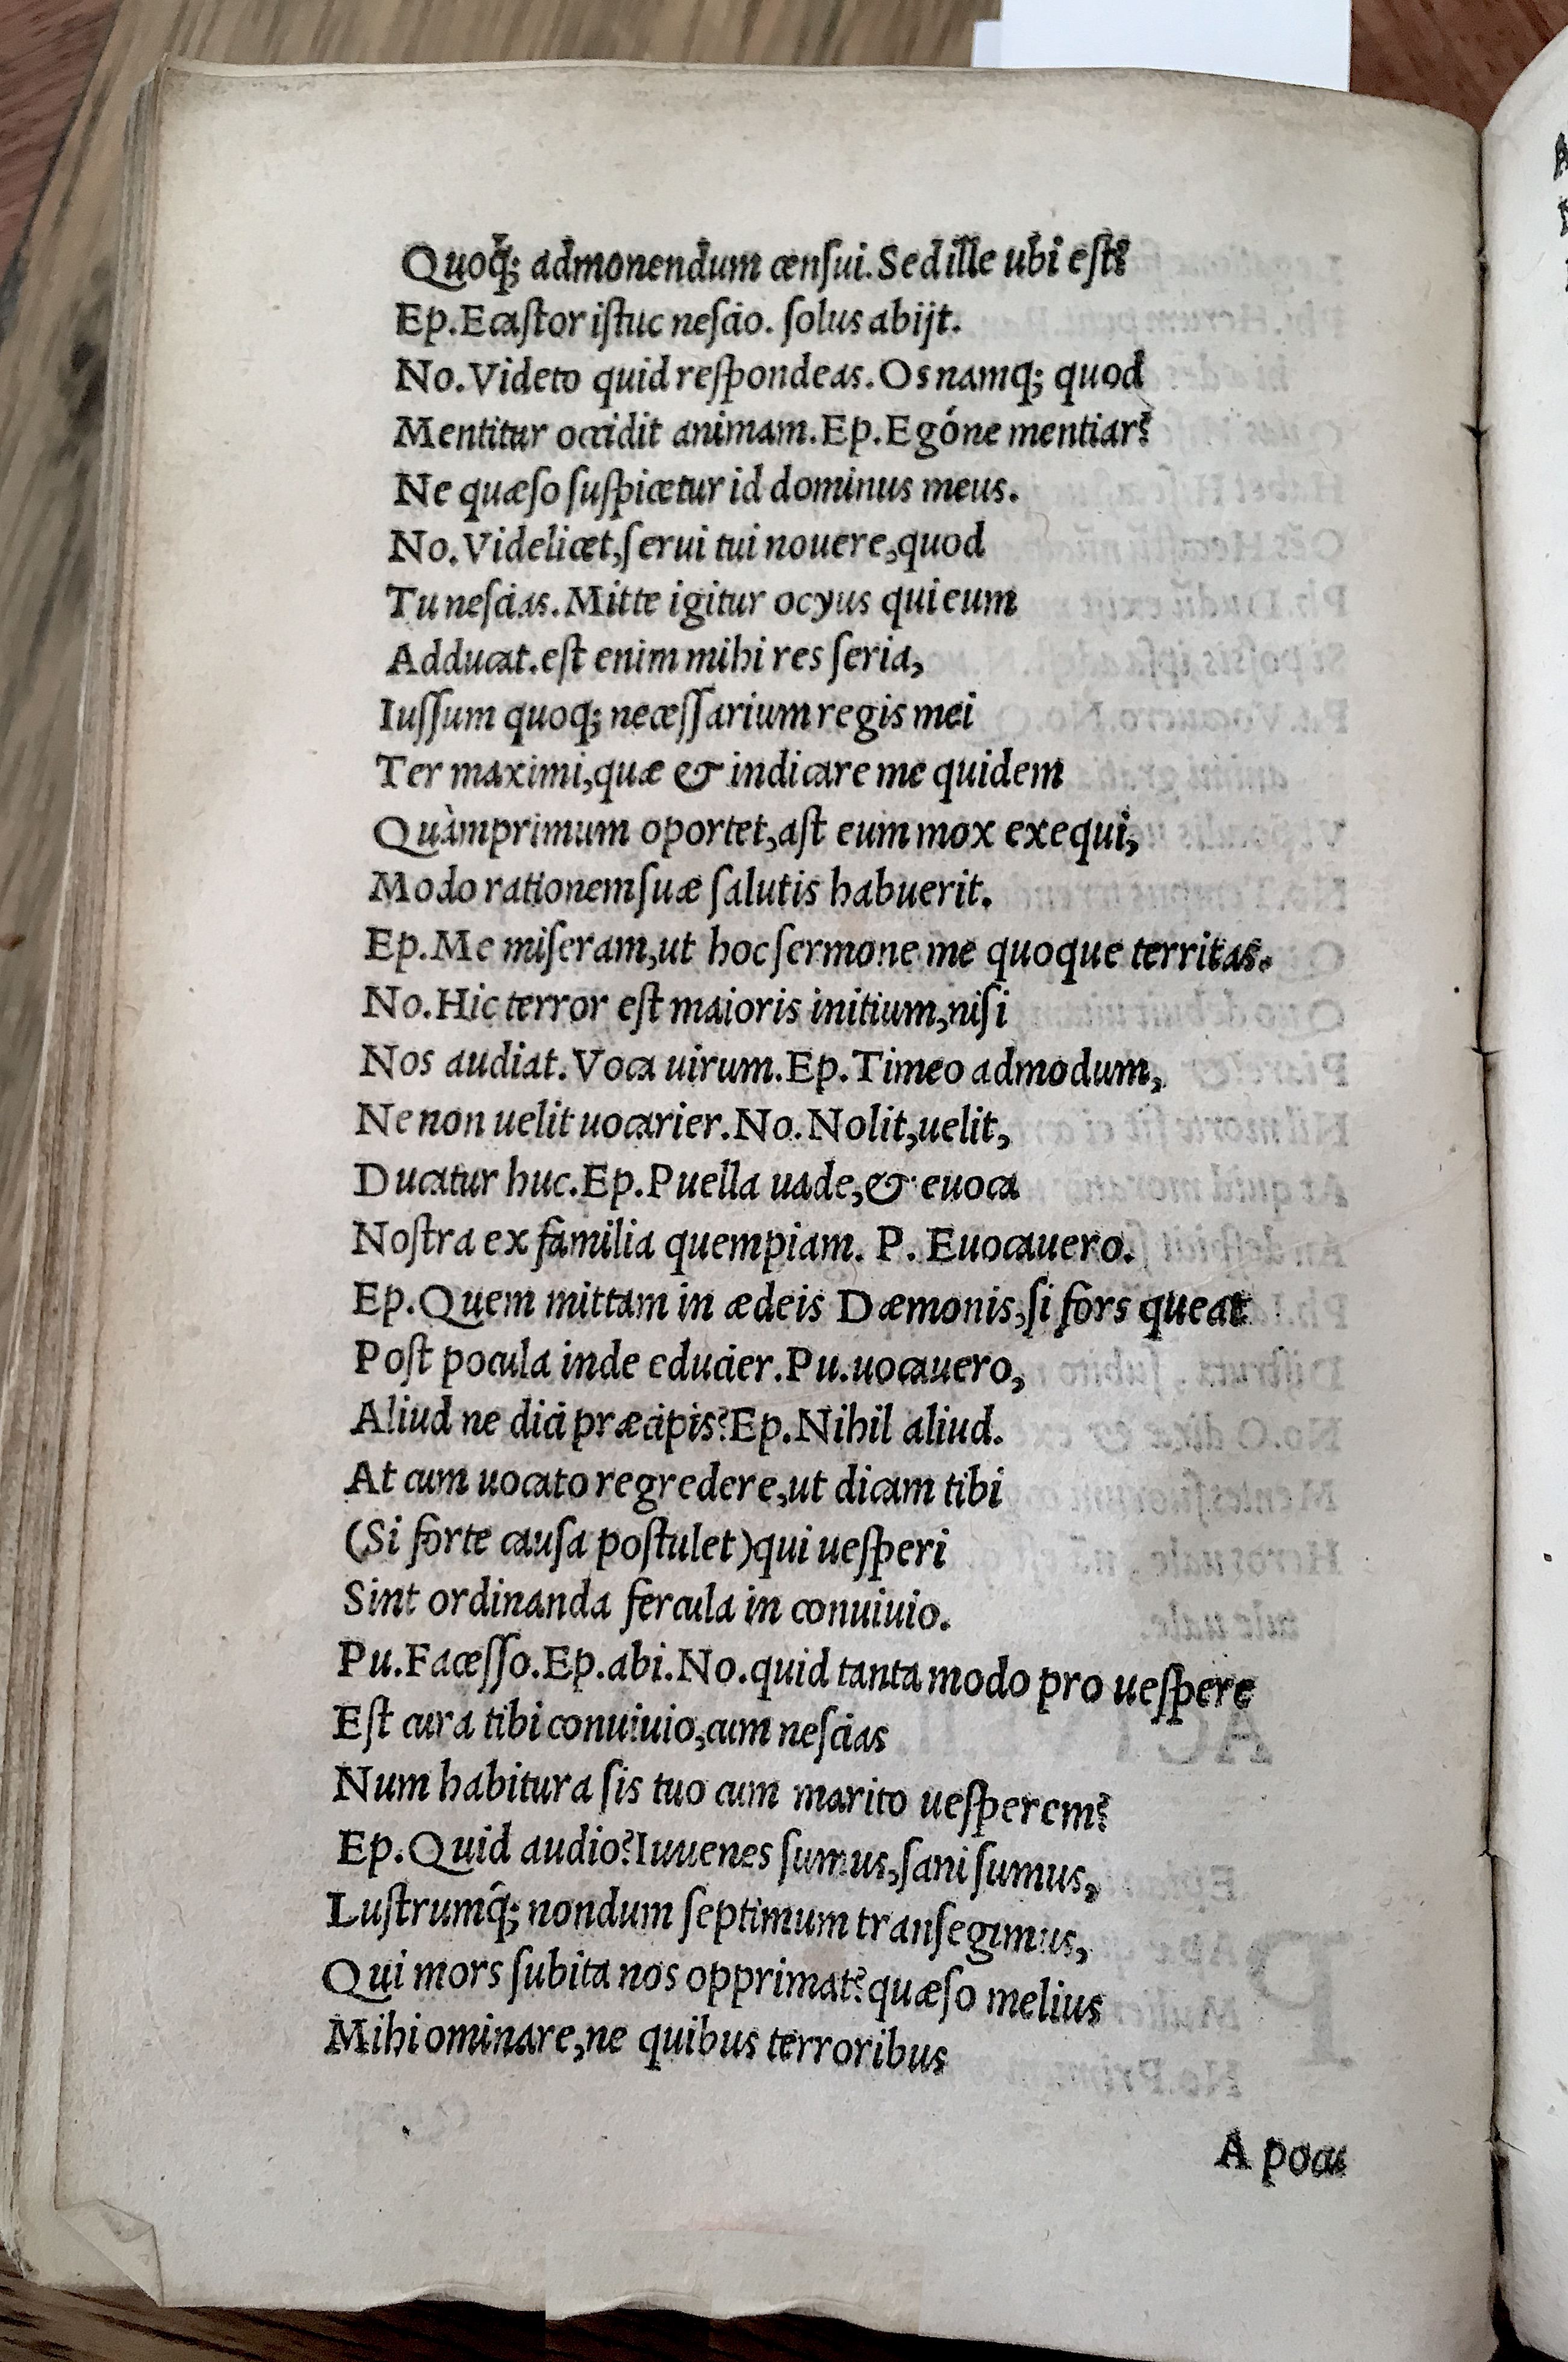 Quoq̃; admonendum censui. Sed ille ubi est?
Ep. Ecastor istuc nescio. solus abijt.
No. Videto quid respondeas. Os namq; quod
Mentitur occidit animam. Ep. Egóne mentiar?
Ne quæso suspicetur id dominus meus.
No. Videlicet, serui tui nouere, quod
Tu nescias. Mitte igitur ocyus qui eum
Adducat. est enim mihi res seria,
Iussum quoq; necessarium regis mei
Ter maximi, quæ & indicare me quidem
Quàmprimum oportet, ast eum mox exequi,
Modo rationem suæ salutis habuerit.
Ep. Me miseram, ut hoc sermone me quoque territas.
No. Hic terror est maioris initium, nisi
Nos audiat. Voca uirum. Ep. Timeo admodum,
Ne non uelit uocarier. No. Nolit, uelit,
Ducatur huc. Ep. Puella uade, & euoca
Nostra ex familia quempiam. P. Euocauero.
Ep. Quem mittam in ædeis Dæmonis, si fors queat
Post pocula inde educier. Pu. uocauero,
Aliud ne dici præcipis? Ep. Nihil aliud.
At cum uocato regredere, ut dicam tibi
(Si forte causa postulet) qui uesperi
Sint ordinanda fercula in conuiuio.
Pu. Facesso. Ep. abi. No. quid tanta modo pro uespere
Est cura tibi conuiuio, cum nescias
Num habitura sis tuo cum marito uesperem?
Ep. Quid audio? Iuuenes sumus, sani sumus,
Lustrumq́; nondum septimum transegimus,
Qui mors subita nos opprimat? quæso melius
Mihi ominare, ne quibus terroribus
A pocu